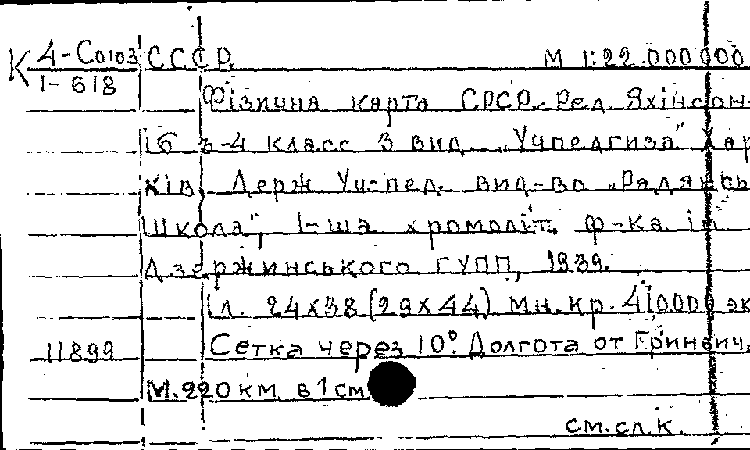 К 4-С0103 СССР. М 1:22.000000
1-618
Фізична карта СРСР. Ред. Яхінсон.
3-4 класс 3 вид. "Учпедгиза" Хар
ків, Держ. Уч-пед. вид-во "Радянсь
Школа", 1-ша хромоліт. ф-ка ім
Дзержинського ГУПП, 1939.
1л. 24х38 (29х44) мн.кр. 410000 эк
11899 Сетка через 10°. Долгота от Гринвич.
М. 220 км в 1 см
см.сл.к.